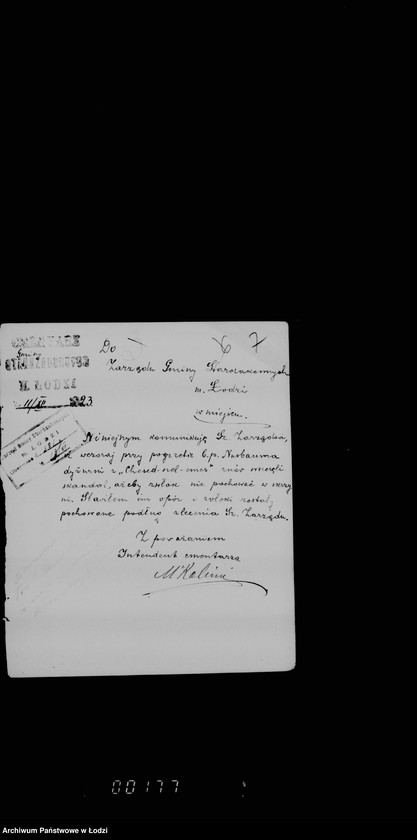 CMENTARZ
Gminy
STAROZAKONNYCH
W ŁODZI
11/XI 1923.
Do
6 7
Zarządu Gminy Starozakonnych
m. Łodzi
w miejscu.
Niniejszym komunikuję Sz. Zarządowi,
że wczoraj przy pogrzebie b.p. Nusbauma
dyżurni z „Chesed-wel-emes" znów wszczęli
skandal, ażeby zwłok nie pochować w skrzy
ni. Stawiłem im opór i zwłoki zostały
pochowane podług zlecenia Sz. Zarządu.
Z poważaniem
Intendent cmentarza
00177
Archiwum Państwowe w Łodzi